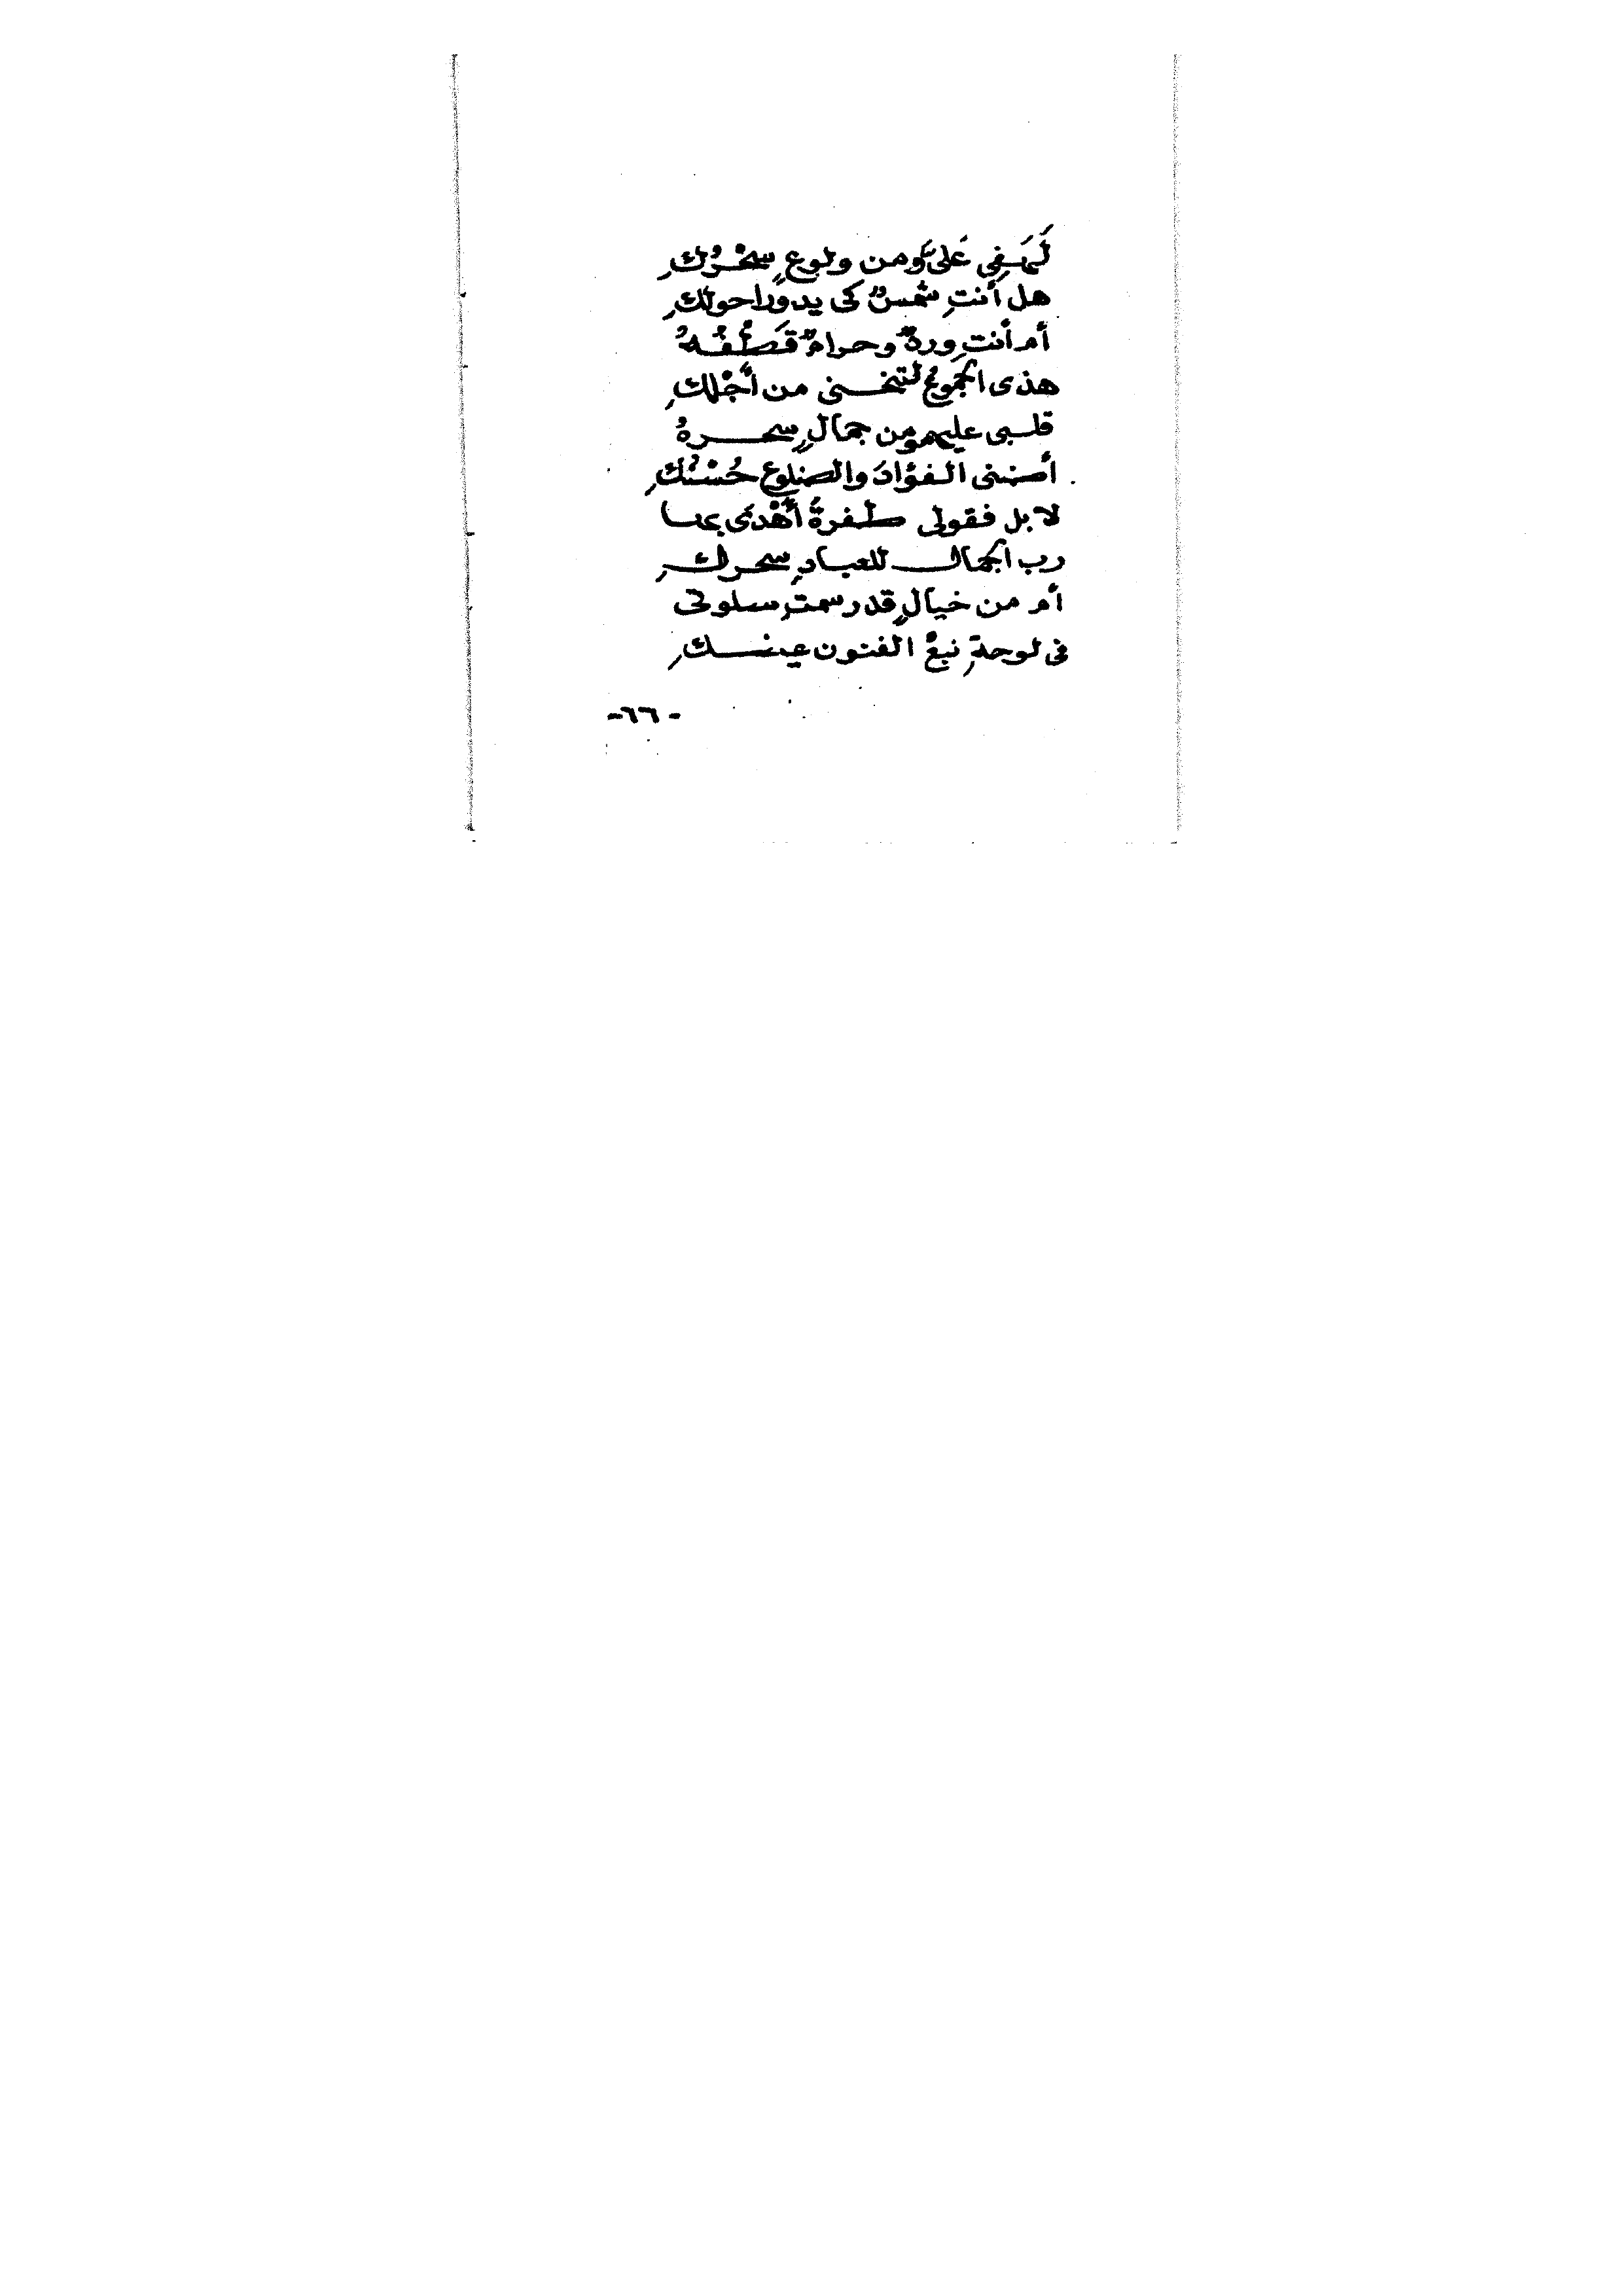 لَهَفِي عَلىَّ ومن ولوعٍ سِحْرُكِ
هل أنتِ شمسٌ كى يدورا حولكِ
أم أنتِ وردةٌ وحرامٌ قَطْفُهُ
هذى الجموعُ لتنحنى من أجْلكِ
قلبى عليهمو من جمالٍ سحرهُ
أضنى الفؤادَ والضلوع حُسْنُكِ
لا بل فقولى طفرةً أهْدَى بها
رب الجمال للعبادِ سحركِ
أم من خيالٍ قد رسمتِ سلوتى
فى لوحةِ نبعُ الفنون عينكِ
-٦٦-